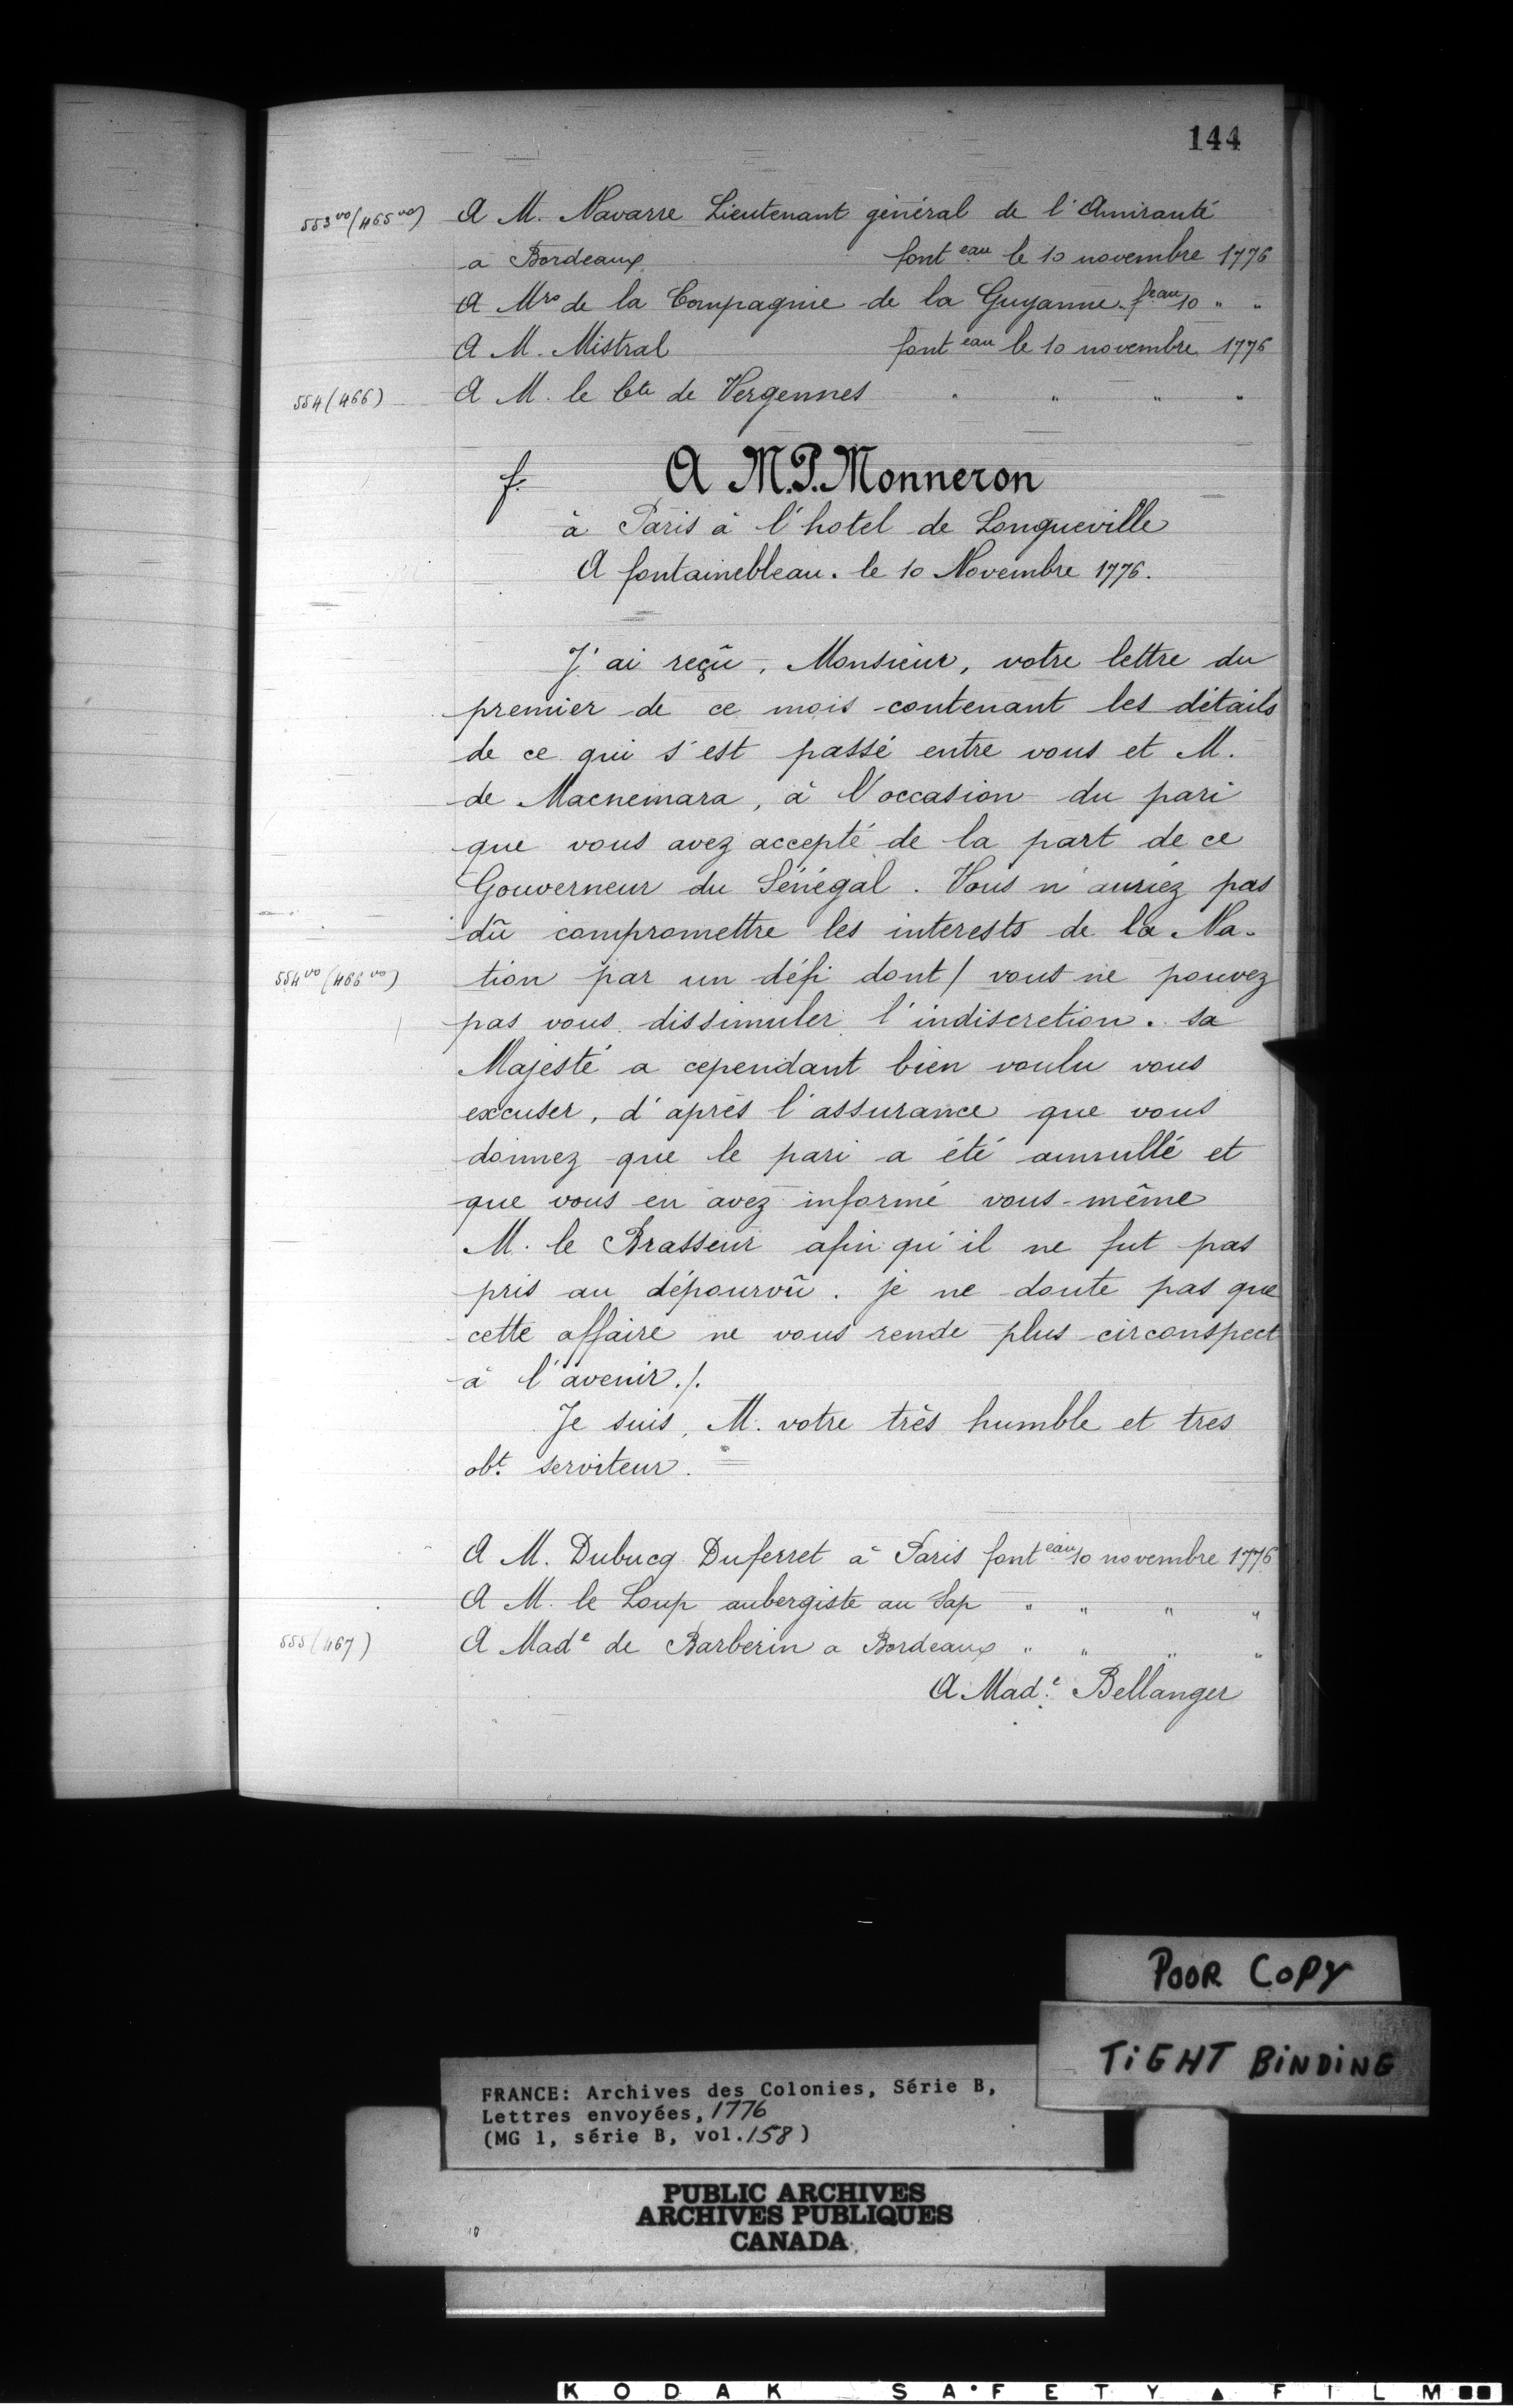 144
553 vo (465 vo) A M. Navarre Lieutenant général de l'Amirauté
à Bordeaux font eau le 10 novembre 1776
A Mrs de la Compagnie de la Guyanne. f eau 10 " "
A M. Mistral font eau le 10 novembre 1776
554 (466) A M. le Cte de Vergennes " " " "
f. A M.P. Monneron
à Paris à l'hotel de Longueville
A fontainebleau. le 10 Novembre 1776.
J'ai reçû, Monsieur, votre lettre du
premier de ce mois contenant les détails
de ce qui s'est passé entre vous et M.
de Macnemara, à l'occasion du pari
que vous avez accepté de la part de ce
Gouverneur du Sénégal. Vous n'auriez pas
dû compromettre les interests de la Na-
554 vo (466 vo) tion par un défi dont / vous ne pouvez
pas vous dissimuler l'indiscretion. sa
Majesté a cependant bien voulu vous
excuser, d'après l'assurance que vous
donnez que le pari a été annullé et
que vous en avez informé vous-même
M. le Brasseur afin qu'il ne fut pas
pris au dépourvû. je ne doute pas que
cette affaire ne vous rende plus circonspect
à l'avenir./.
Je suis, M. votre très humble et tres
obt. serviteur. =
A M. Dubucq Duferret à Paris font eau 10 novembre 1776
A M. le Loup aubergiste au Sap " " " "
555 (467) A Made de Barberin a Bordeaux " " " "
A Made. Bellanger
POOR COPY
TIGHT BINDING
FRANCE: Archives des Colonies, Série B,
Lettres envoyées, 1776
(MG 1, série B, vol. 158)
PUBLIC ARCHIVES
ARCHIVES PUBLIQUES
CANADA
10
KODAK SAFETY FILM